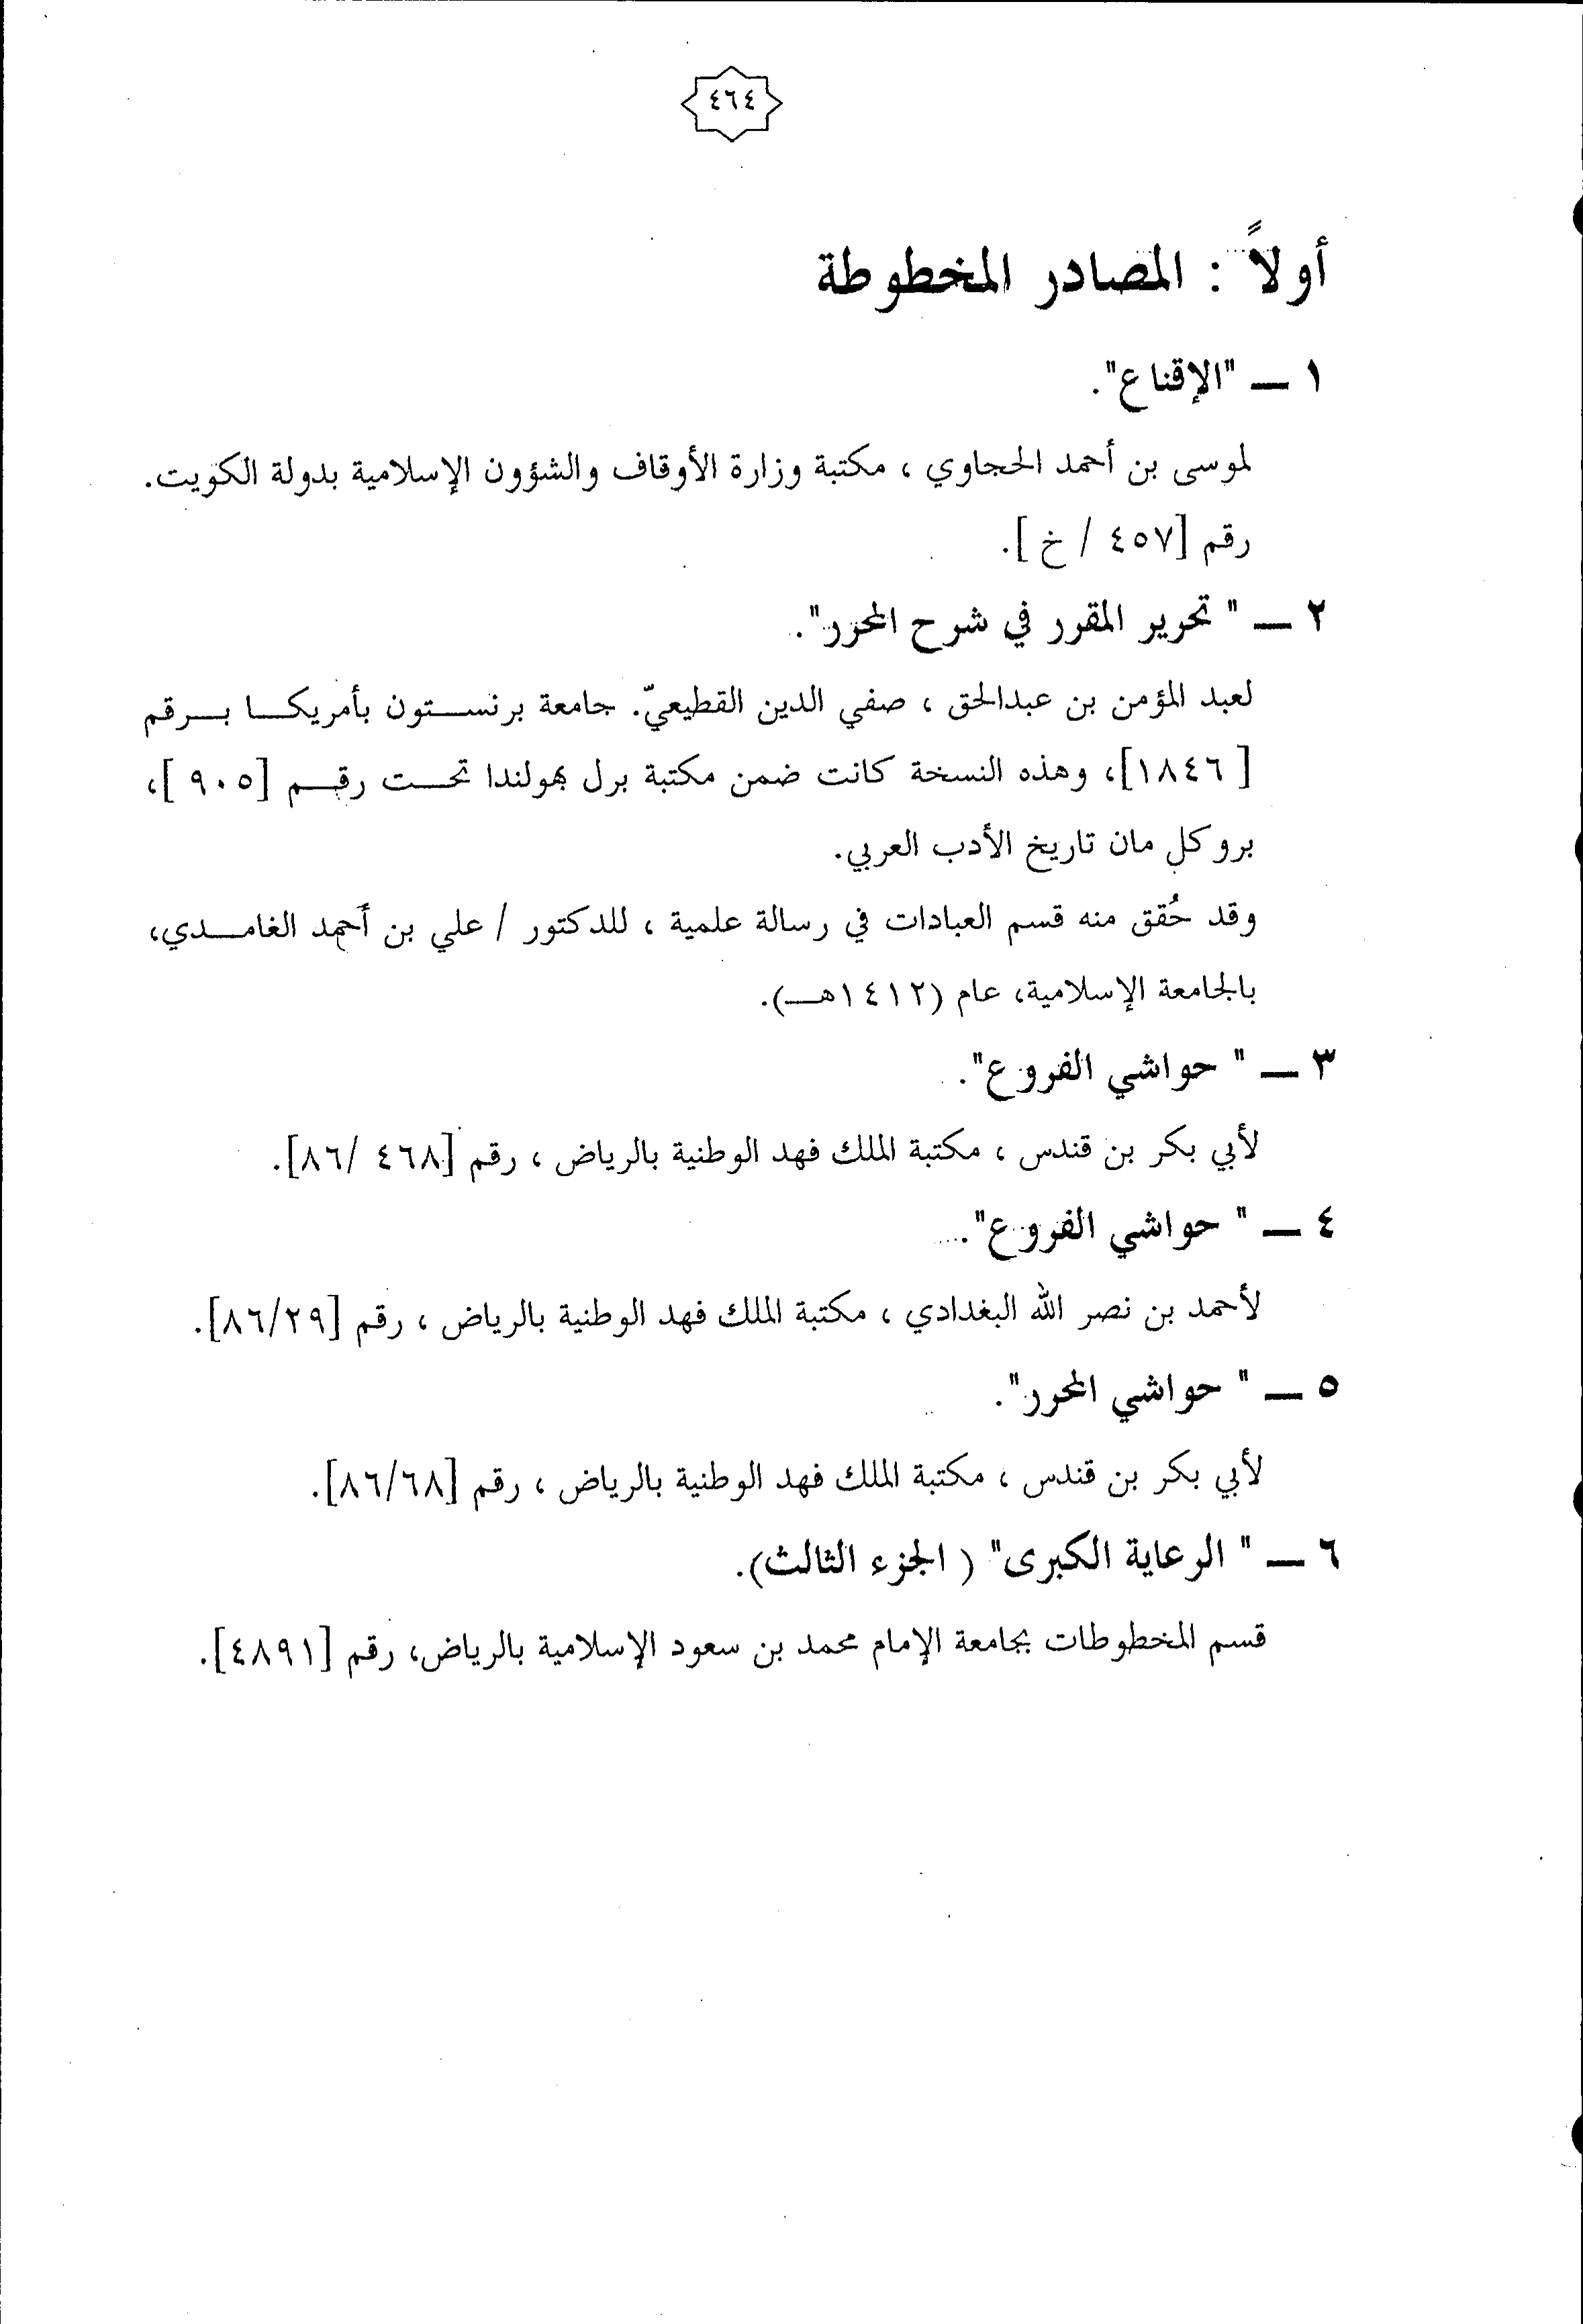 ٤٦٤
أولاً : المصادر المخطوطة
١ ــ "الإقناع".
لموسى بن أحمد الحجاوي ، مكتبة وزارة الأوقاف والشؤون الإسلامية بدولة الكويت.
رقم [٤٥٧ / خ ].
٢ ــ " تحرير المقرر في شرح المحرر".
لعبد المؤمن بن عبدالحق ، صفي الدين القطيعيّ. جامعة برنســتون بأمريكــا بــرقم
[ ١٨٤٦]، وهذه النسخة كانت ضمن مكتبة برل بهولندا تحــت رقــم [٩٠٥ ]،
بروكل مان تاريخ الأدب العربي.
وقد حُقق منه قسم العبادات في رسالة علمية ، للدكتور / علي بن أحمد الغامــدي،
بالجامعة الإسلامية، عام (١٤١٢هــ).
٣ ــ " حواشي الفروع".
لأبي بكر بن قندس ، مكتبة الملك فهد الوطنية بالرياض ، رقم [٤٦٨ /٨٦].
٤ ــ " حواشي الفروع".
لأحمد بن نصر الله البغدادي ، مكتبة الملك فهد الوطنية بالرياض ، رقم [٨٦/٢٩].
٥ ــ " حواشي المحرر".
لأبي بكر بن قندس ، مكتبة الملك فهد الوطنية بالرياض ، رقم [٨٦/٦٨].
٦ ــ " الرعاية الكبرى" ( الجزء الثالث).
قسم المخطوطات بجامعة الإمام محمد بن سعود الإسلامية بالرياض، رقم [٤٨٩١].